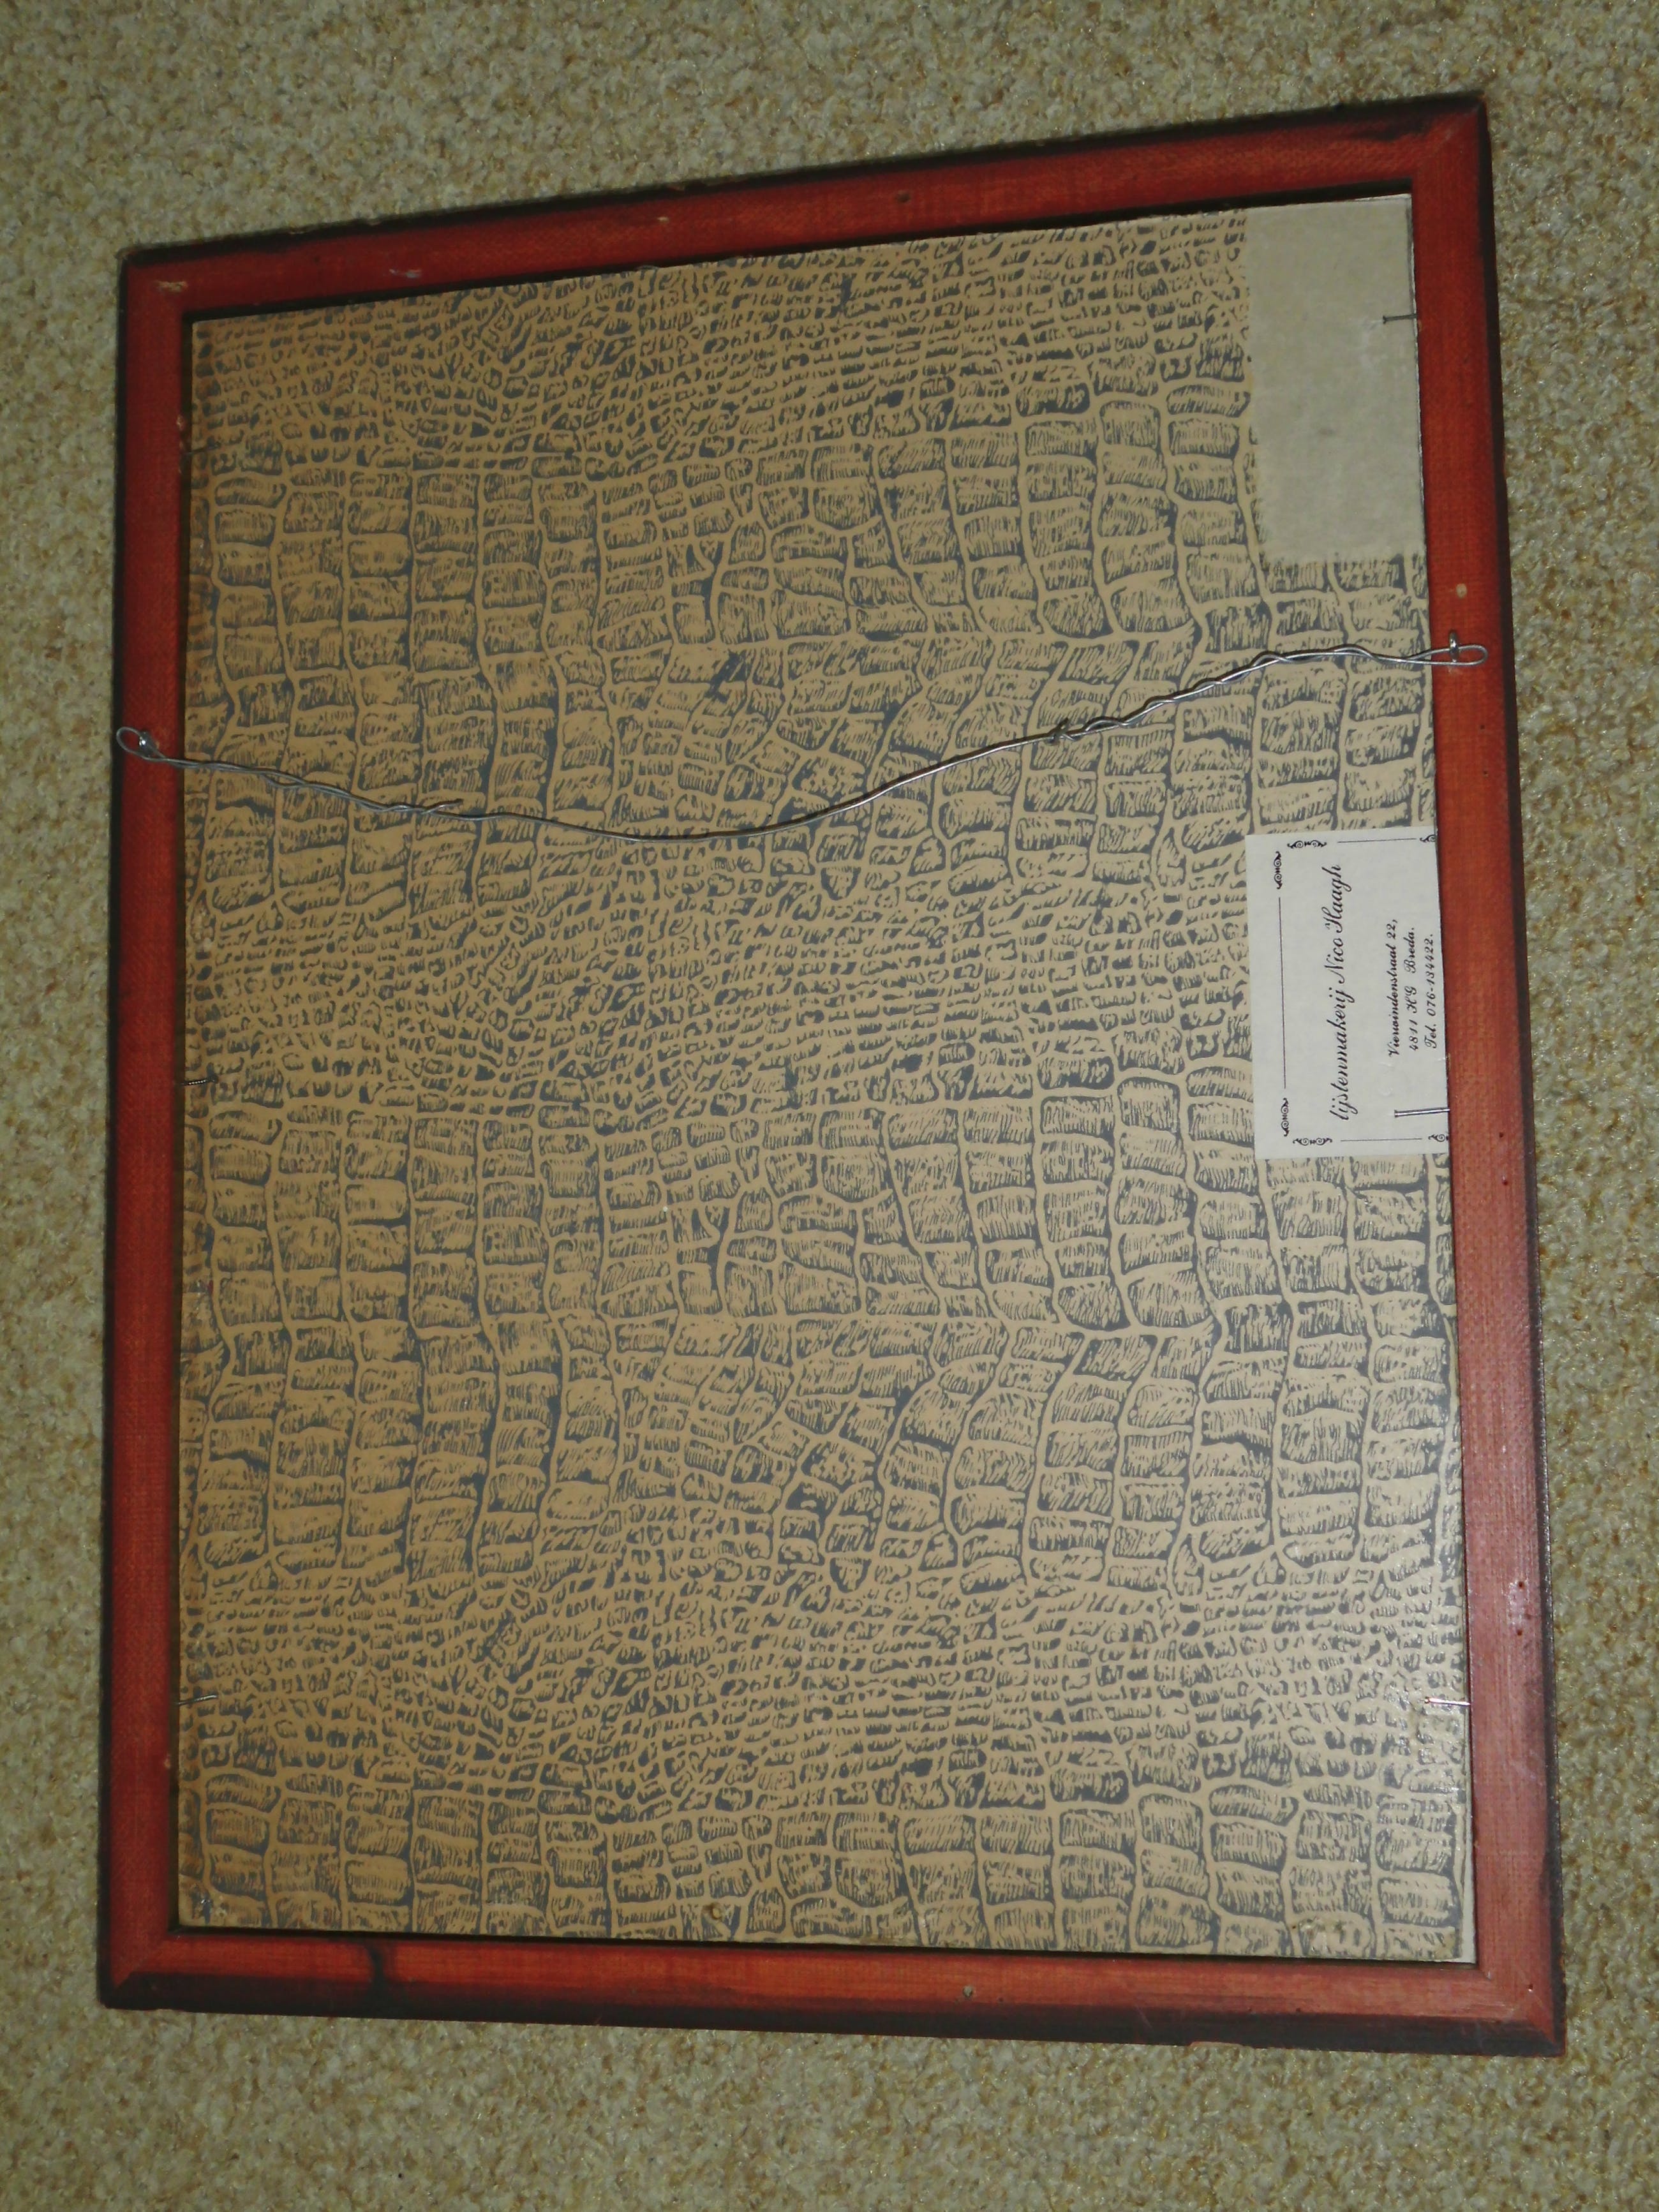 lijstenmakerij Nico Haagh
Vierwindenstraat 22,
4811 HG Breda.
Tel. 076-134422.